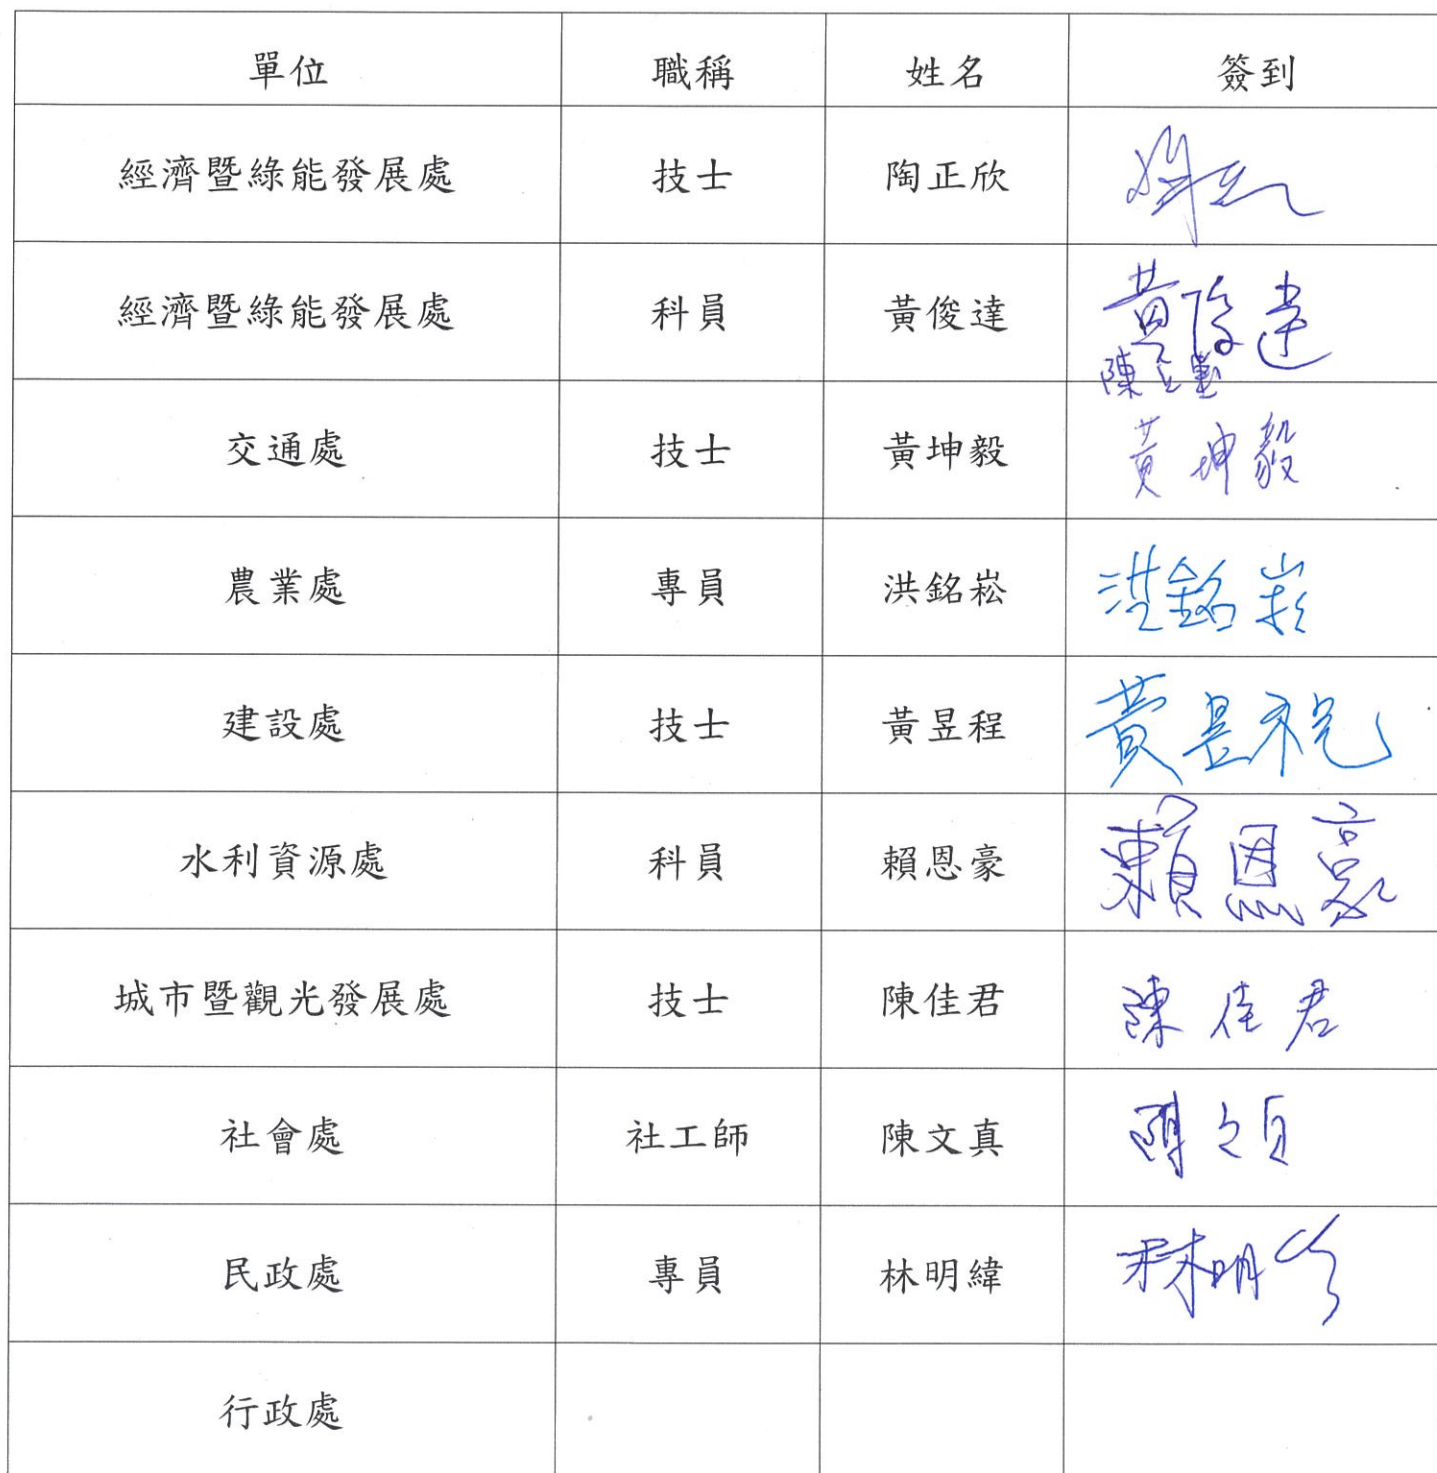 單位 職稱 姓名 簽到
經濟暨綠能發展處 技士 陶正欣
經濟暨綠能發展處 科員 黃俊達 黃俊達
陳
交通處 技士 黃坤毅 黃坤毅
農業處 專員 洪銘崧 洪銘崧
建設處 技士 黃昱程 黃昱程
水利資源處 科員 賴恩豪 賴恩豪
城市暨觀光發展處 技士 陳佳君 陳佳君
社會處 社工師 陳文真
民政處 專員 林明緯 林明
行政處